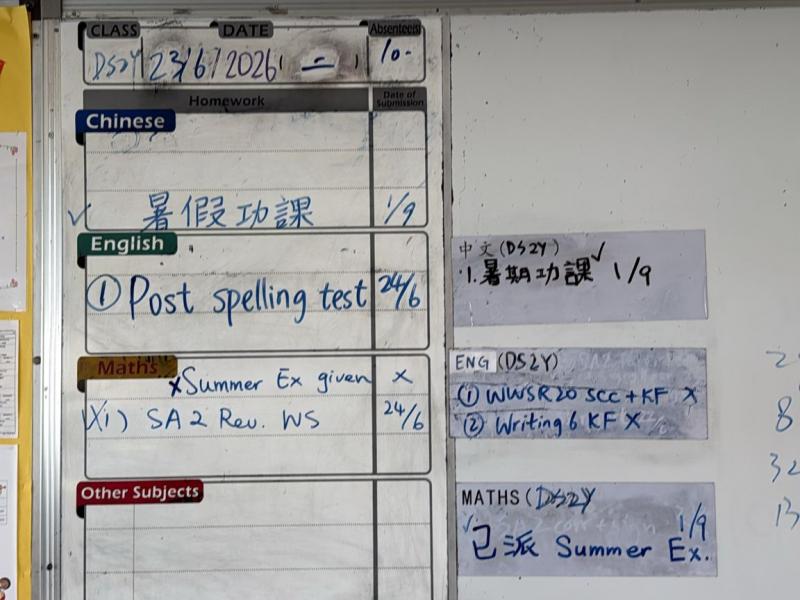 CLASS DATE Absentee(s)
DS2Y 23/6/2026 (二) 10.
Homework Date of Submission
Chinese
✓ 暑假功課 1/9
English
① Post spelling test 24/6
Maths
x Summer Ex given x
1) SA2 Rev. WS 24/6
Other Subjects
中文(DS2Y)
1. 暑期功課 ✓ 1/9
ENG (DS2Y)
① WWSR20 SCC + KF X
② Writing 6 KF X
MATHS (DS2Y)
1/9
已派 Summer Ex.